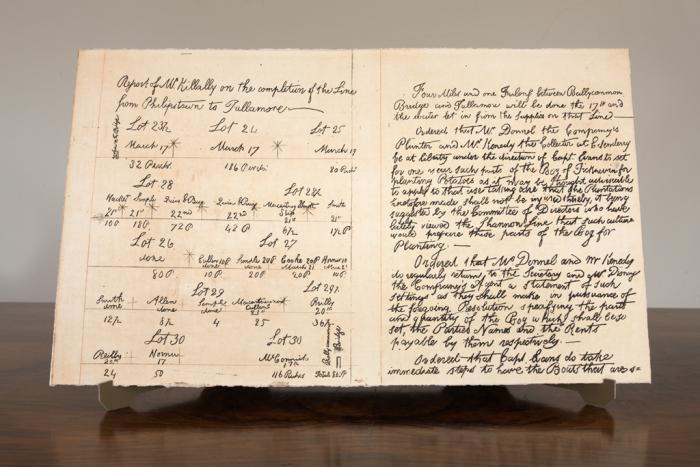 Report of Mr Killally on the completion of the Line
from Philipstown to Tullamore
Lot 23½ Lot 24 Lot 25
March 17 March 17 March 19
32 Perches 186 Perches 80 Perches
Lot 28 Lot 28½
21st 21st 22nd 22nd
10P 18P 72P 42P 6½ 17½P
Lot 26 Lot 27
done
80P 10P 20P 20P 10P
Lot 29 Lot 29½
Smith done Allen done Temple done Reilly 20th
12½ 8½ 4 25 36½
Lot 30 Lot 30
Reilly 17
24 50 116 Perches Total 861P
Four Miles and one Furlong between Ballycommon
Bridge and Tullamore will be done the 17th and
the water let in from the supplies on that Line
Ordered that Mr Donnel the Company's
Planter and Mr Kenedy the Collector at Edenderry
be at liberty under the direction of Capt Evans to set
for one year such parts of the Bog of for
planting Potatoes as it may be thought adviseable
to apply to that use taking care that the Plantations
heretofore made shall not be injured thereby, it being
suggested by the Committee of Directors who have
lately viewed the Shannon Line that such culture
would prepare these parts of the Bog for
Planting
Ordered that Mr Donnel and Mr Kenedy
do regularly return to the Secretary and Mr Denny
the Company's Agent a statement of such
settings as they shall make in pursuance of
the foregoing Resolution, specifying the parts
and quantity of the Bog which shall be so
set, the Parties Names and the Rents
payable by them respectively.
Ordered that Capt Evans do take
immediate steps to have the Boats that are s=